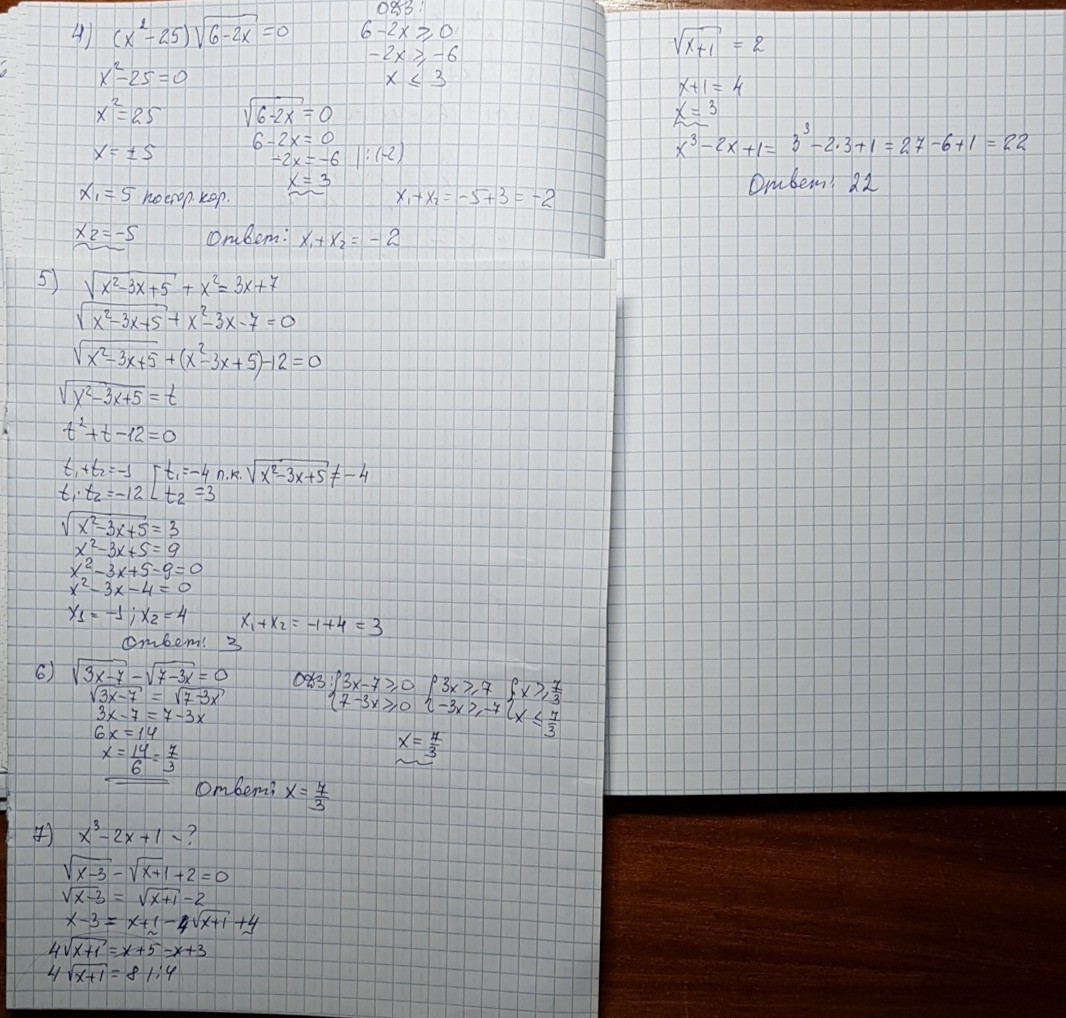 4) (x²-25)√(6-2x) = 0
ОДЗ:
6-2x ≥ 0
-2x ≥ -6
x ≤ 3
x²-25=0
x²=25
x=±5
√(6-2x) = 0
6-2x=0
-2x=-6 |:(-2)
x=3
x₁=5 постор.кор.
x₂=-5
x₁+x₂=-5+3=-2
Ответ: x₁+x₂=-2
5) √(x²-3x+5) + x²=3x+7
√(x²-3x+5) + x²-3x-7=0
√(x²-3x+5) + (x²-3x+5)-12=0
√(x²-3x+5) = t
t²+t-12=0
t₁+t₂=-1
t₁·t₂=-12
[t₁=-4 п.к. √(x²-3x+5) ≠ -4
t₂=3
√(x²-3x+5) = 3
x²-3x+5=9
x²-3x+5-9=0
x²-3x-4=0
x₁=-1; x₂=4
x₁+x₂=-1+4=3
Ответ: 3
6) √(3x-7) - √(7-3x) = 0
√(3x-7) = √(7-3x)
3x-7=7-3x
6x=14
x=14/6=7/3
ОДЗ: {3x-7≥0 {3x≥7 {x≥7/3
{7-3x≥0 {-3x≥-7 {x≤7/3
x=7/3
Ответ: x=7/3
7) x³-2x+1 -?
√(x-3) - √(x+1) +2=0
√(x-3) = √(x+1) -2
x-3=x+1-4√(x+1)+4
4√(x+1)=x+5-x+3
4√(x+1)=8 |:4
√(x+1) = 2
x+1=4
x=3
x³-2x+1= 3³-2·3+1=27-6+1=22
Ответ: 22